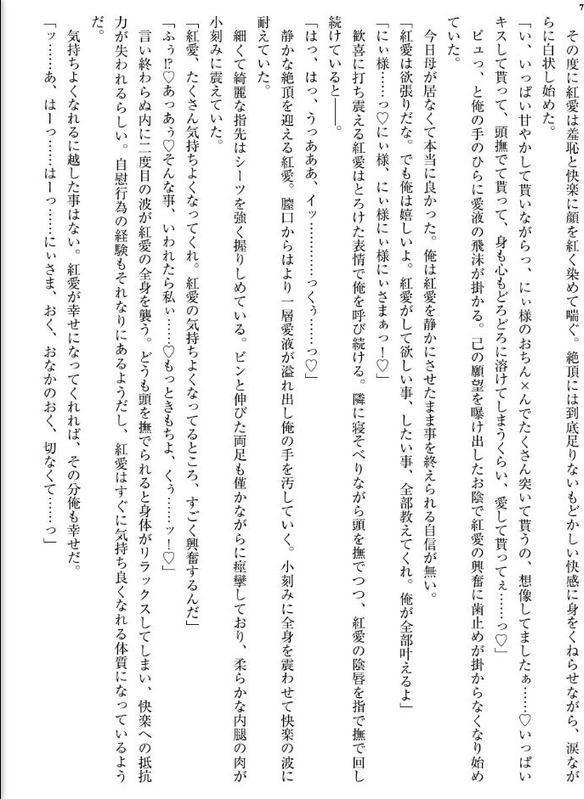 7
その度に紅愛は羞恥と快楽に顔を紅く染めて喘ぐ。絶頂には到底足りないもどかしい快感に身をくねらせながら、涙なが
らに白状し始めた。
「い、いっぱい甘やかして貰いながらっ、にぃ様のおちん×んでたくさん突いて貰うの、想像してましたぁ……♡いっぱい
キスして貰って、頭撫でて貰って、身も心もどろどろに溶けてしまうくらい、愛して貰ってぇ……っ♡」
ビュっ、と俺の手のひらに愛液の飛沫が掛かる。己の願望を曝け出したお陰で紅愛の興奮に歯止めが掛からなくなり始め
ていた。
今日母が居なくて本当に良かった。俺は紅愛を静かにさせたまま事を終えられる自信が無い。
「紅愛は欲張りだな。でも俺は嬉しいよ。紅愛がして欲しい事、したい事、全部教えてくれ。俺が全部叶えるよ」
「にぃ様……っ♡にぃ様、にぃ様にぃ様にぃさまぁっ！♡」
歓喜に打ち震える紅愛はとろけた表情で俺を呼び続ける。隣に寝そべりながら頭を撫でつつ、紅愛の陰唇を指で撫で回し
続けていると――。
「はっ、はっ、うっあああ、イッ……………っくぅ……っ♡」
静かな絶頂を迎える紅愛。膣口からはより一層愛液が溢れ出し俺の手を汚していく。小刻みに全身を震わせて快楽の波に
耐えていた。
細くて綺麗な指先はシーツを強く握りしめている。ピンと伸びた両足も僅かながらに痙攣しており、柔らかな内腿の肉が
小刻みに震えていた。
「紅愛、たくさん気持ちよくなってくれ。紅愛の気持ちよくなってるところ、すごく興奮するんだ」
「ふぅ⁉♡あっあぅ♡そんな事、いわれたら私ぃ……♡もっときもちよ、くぅ……ッ！♡」
言い終わらぬ内に二度目の波が紅愛の全身を襲う。どうも頭を撫でられると身体がリラックスしてしまい、快楽への抵抗
力が失われるらしい。自慰行為の経験もそれなりにあるようだし、紅愛はすぐに気持ち良くなれる体質になっているよう
だ。
気持ちよくなれるに越した事はない。紅愛が幸せになってくれれば、その分俺も幸せだ。
「ッ……あ、はーっ……はーっ……にぃさま、おく、おなかのおく、切なくて……っ」